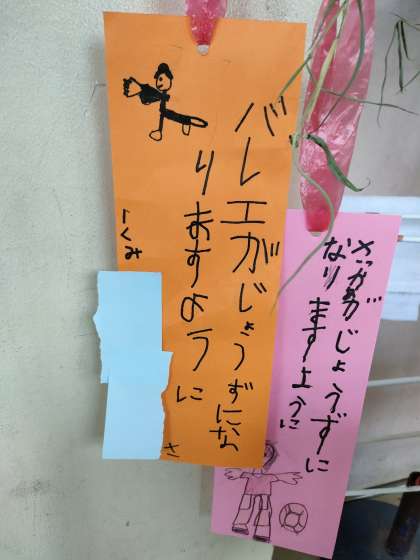 バレエがじょうずにな
りますように
1くみ さ
さっかあがじょうずに
なりますように